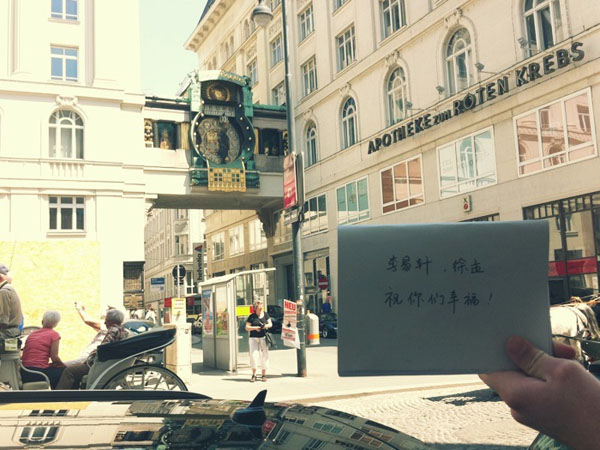 APOTHEKE zum ROTEN KREBS
李易針、徐孟
祝你们幸福!
NEU